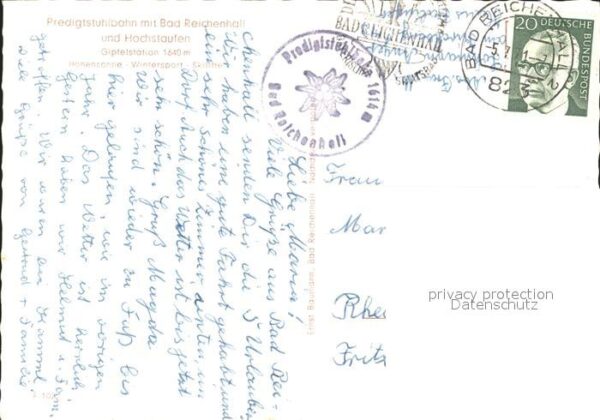 Predigtstuhlbahn mit Bad Reichenhall
und Hochstaufen
Gipfelstation 1640 m
Höhensonne - Wintersport - Skilifte
Liebe Maria!
Viele Grüße aus Bad Rei-
chenhall senden Dir die 5 Urlauber
Wir haben eine gute Fahrt gehabt und
ein sehr schönes Zimmer, unten im
Dorf. Auch das Wetter ist bis jetzt
sehr schön. Gruß Magda
Wir sind wieder zu Fuß bis
hier gelaufen, wie im vorigen
Jahr. Das Wetter ist herrlich
Gestern haben wir Helmut u. Fam.
getroffen. Wir waren am
Viele Grüße von Gertrud + Familie
Ernst Baumann, Bad Reichenhall
Predigtstuhlbahn 1614 m
Bad Reichenhall
BAD REICHENHALL
BAD REICHENHALL
5.7.
82
20
DEUTSCHE
BUNDESPOST
Frau
Mar
Rhe
Fritz
privacy protection
Datenschutz